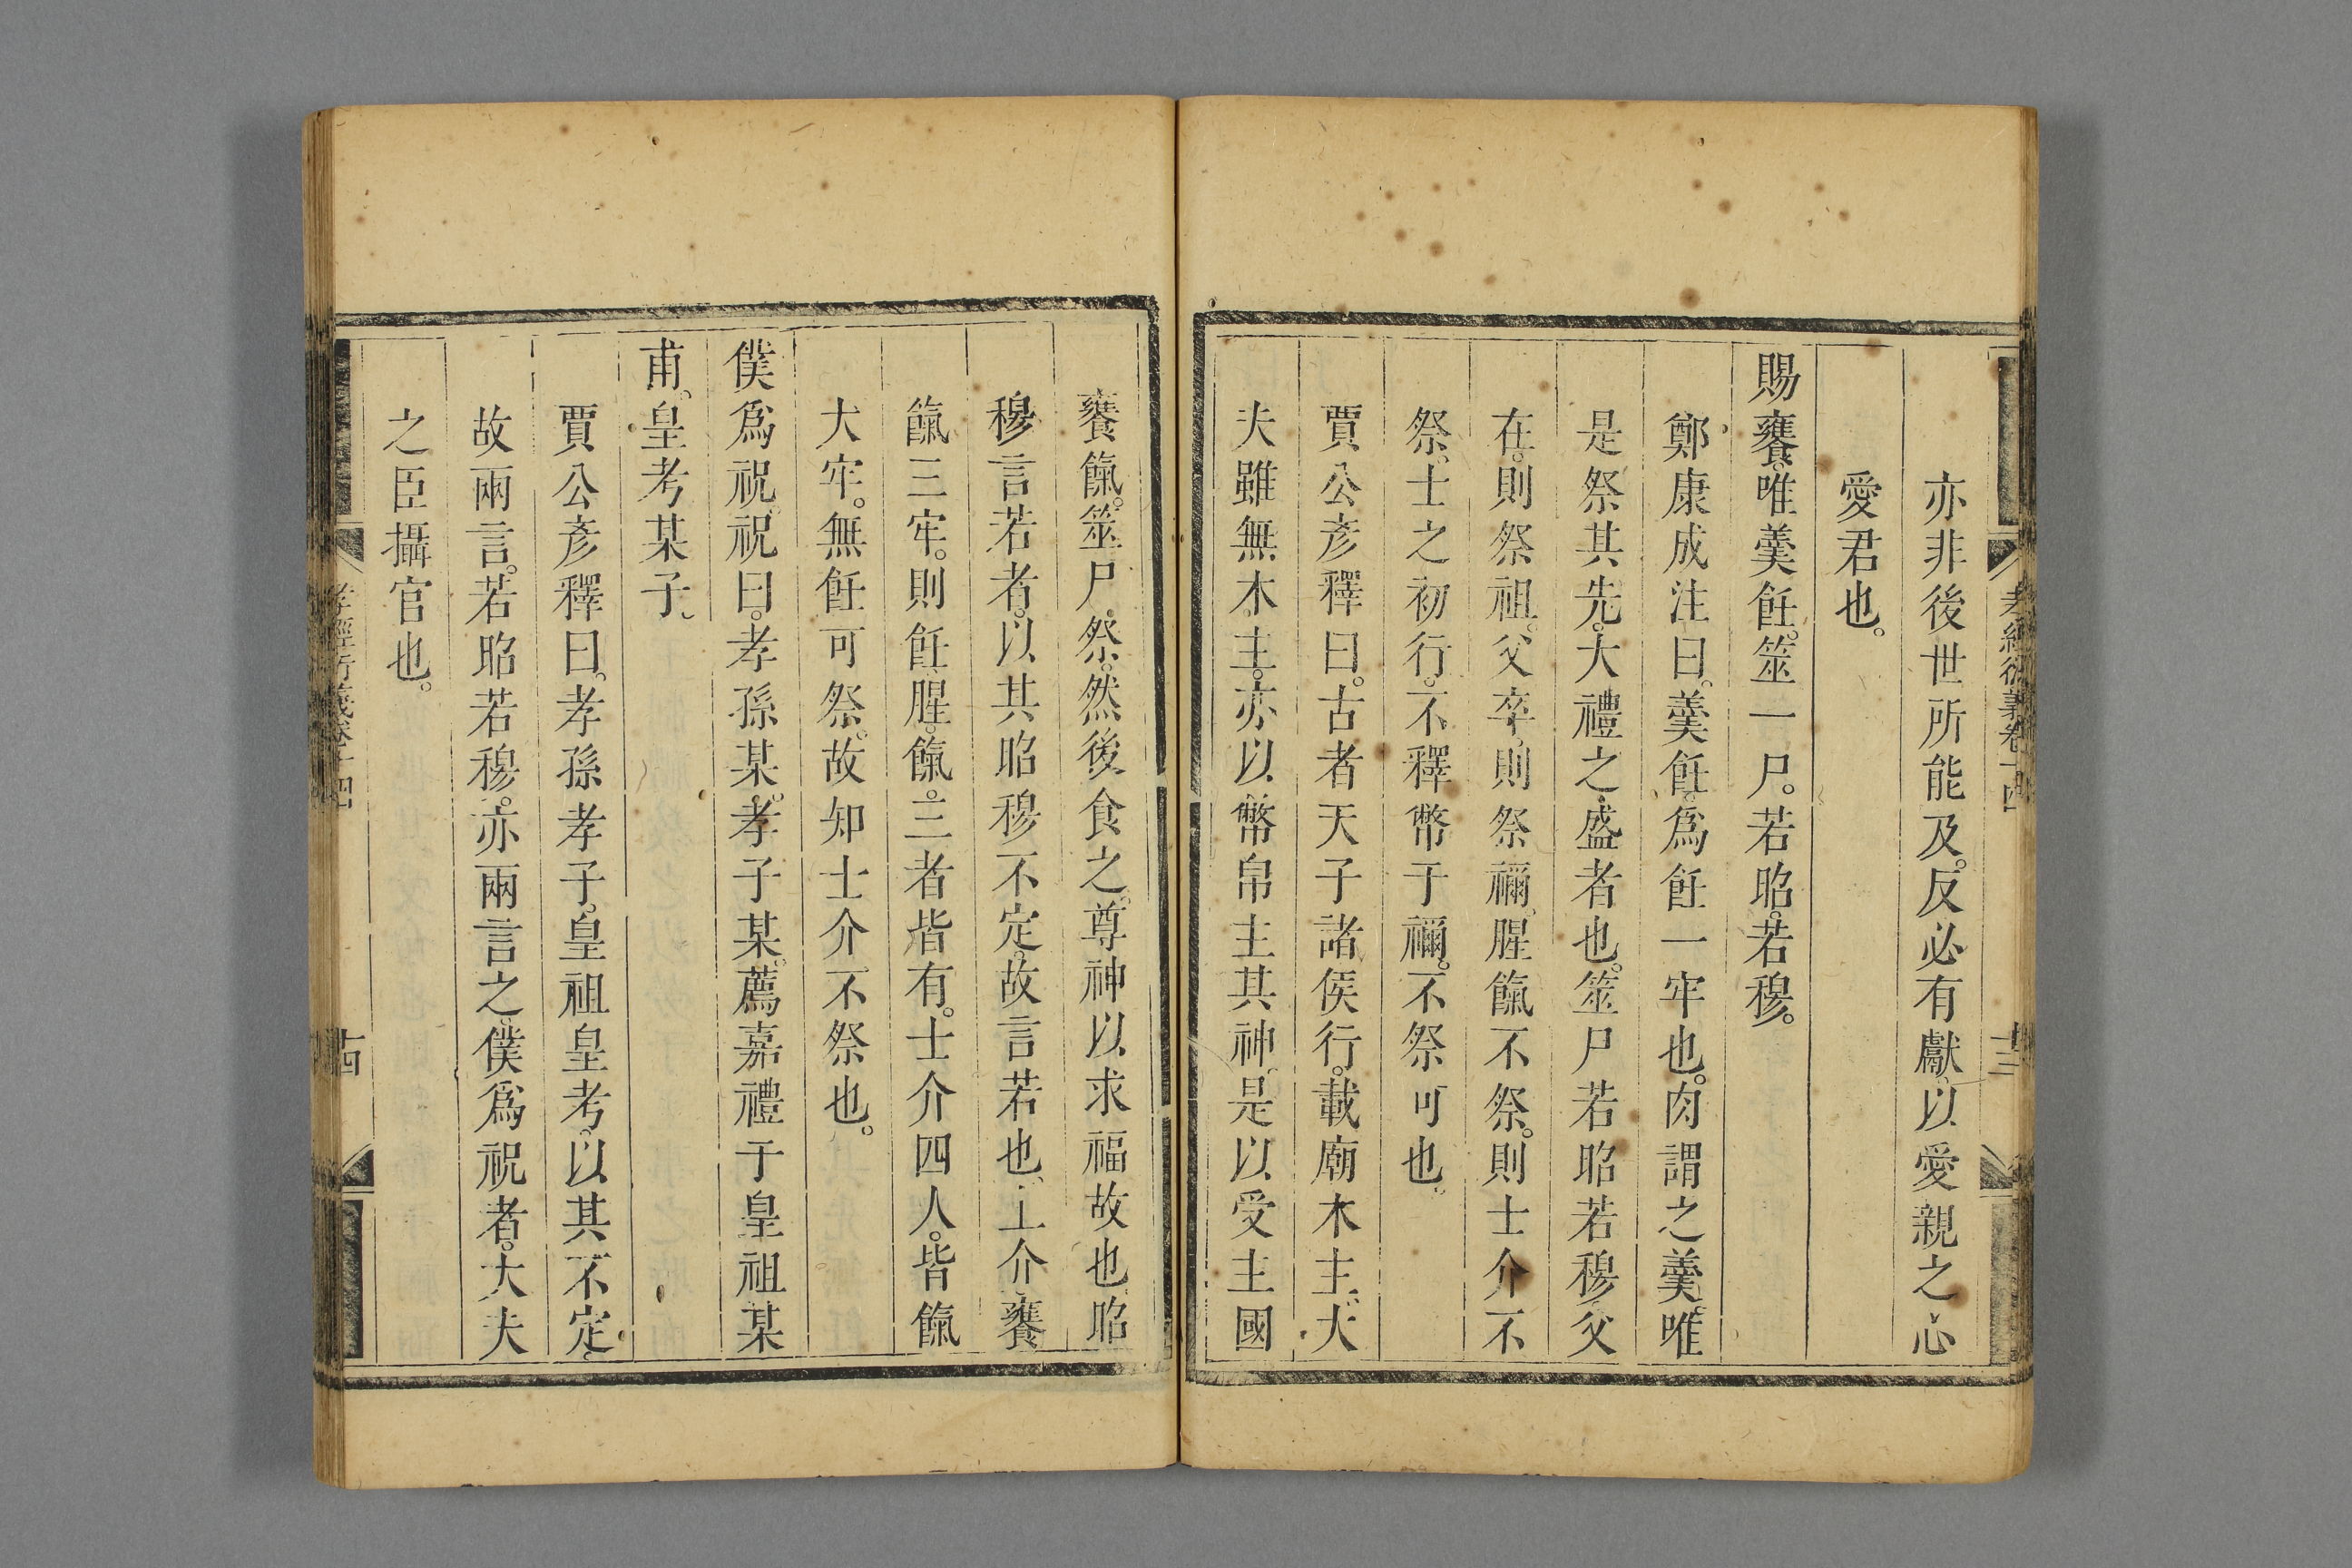 孝經衍義卷十四
十三
亦非後世所能及。反必有獻。以愛親之心
愛君也。
賜饔。唯羹飪。筮一尸。若昭。若穆。
鄭康成注曰。羹飪。爲飪一牢也。肉謂之羹。唯
是祭其先。大禮之盛者也。筮尸若昭若穆父
在。則祭祖。父卒。則祭禰。腥餼不祭。則士介不
祭。士之初行。不釋幣于禰。不祭可也。
賈公彥釋曰。古者天子諸侯行。載廟木主。大
夫雖無木主。亦以幣帛主其神。是以受主國
饔餼。筮尸祭。然後食之。尊神以求福故也。昭
穆言若者。以其昭穆不定。故言若也。上介饔
餼三牢。則飪。腥。餼。三者皆有。士介四人。皆餼
大牢。無飪可祭。故知士介不祭也。
僕爲祝。祝曰。孝孫某。孝子某。薦嘉禮于皇祖某
甫。皇考某子。
賈公彥釋曰。孝孫孝子。皇祖皇考。以其不定。
故兩言。若昭若穆。亦兩言之。僕爲祝者。大夫
之臣攝官也。
孝經衍義卷十四
十四